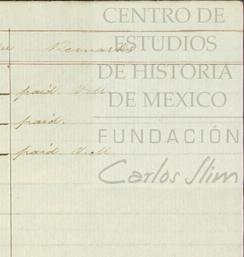 CENTRO DE
ESTUDIOS
DE HISTORIA
DE MEXICO
FUNDACIÓN
Carlos Slim
Remarks
paid. V. M
paid.
paid V. M